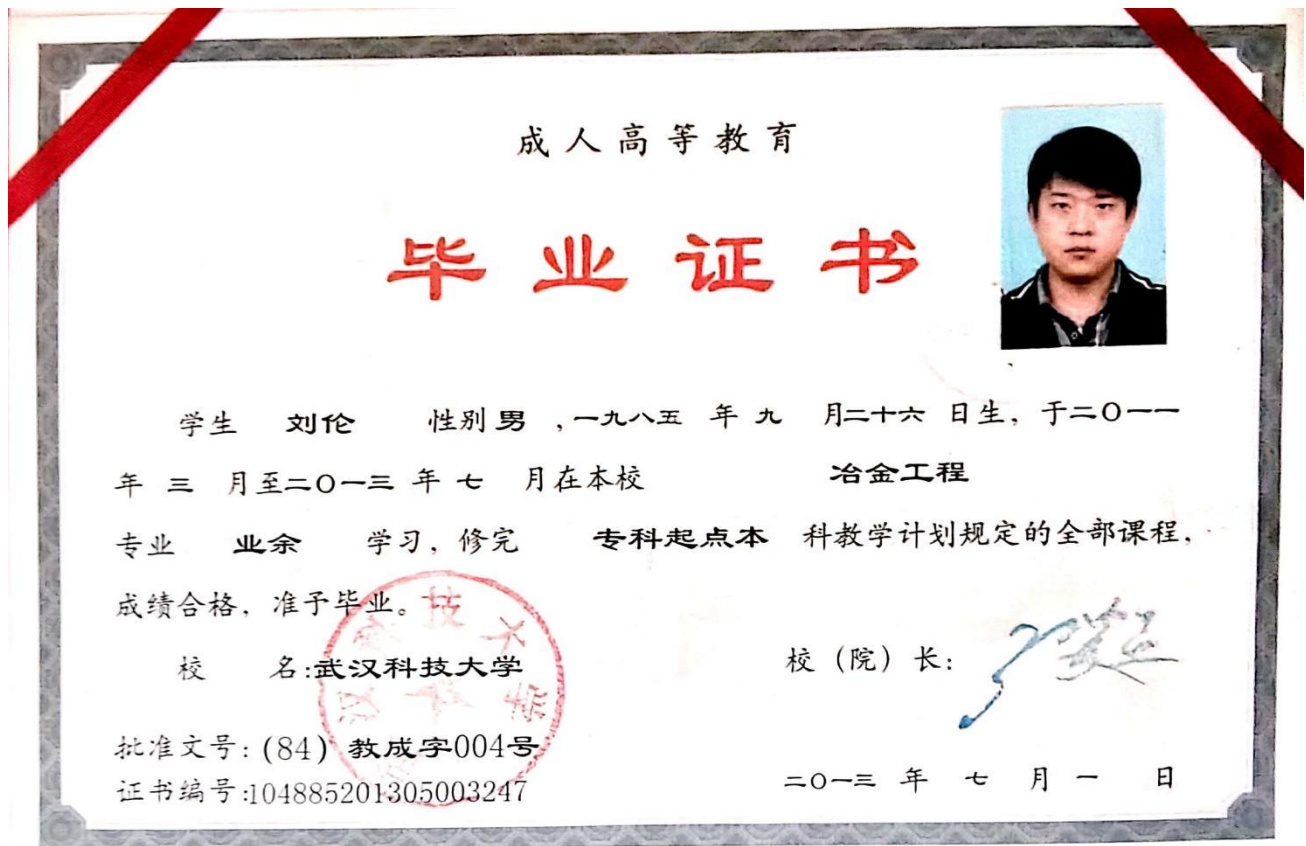 成人高等教育
毕业证书
学生 刘伦 性别 男 ,一九八五 年 九 月二十六 日生，于二〇一一
年 三 月至二〇一三 年 七 月在本校 冶金工程
专业 业余 学习，修完 专科起点本 科教学计划规定的全部课程，
成绩合格，准予毕业。
校 名:武汉科技大学
校（院）长:
批准文号: (84) 教成字004号
证书编号:104885201305003247
二〇一三 年 七 月 一 日